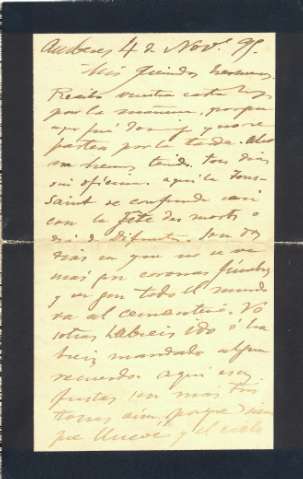 Amberes 4 de Nov.e 95.
Mis queridos hermanos,
Recibo vuestra carta hoy
por la mañana, porque
ayer fué domingo y no se
reparten por la tarde. Ahora
hemos tenido tres dias
sin oficina. aqui la Tous
Saint se confunde casi
con la Fête des morts o
dia de difuntos. Son dos
dias en que no se ve
mas que coronas fúnebres
y en que todo el mundo
va al cementerio. Vo
sotros habreis ido ó ha
breis mandado algun
recuerdo. aqui esas
fiestas son mas tris
tes aún, porque siem
pre llueve y el cielo